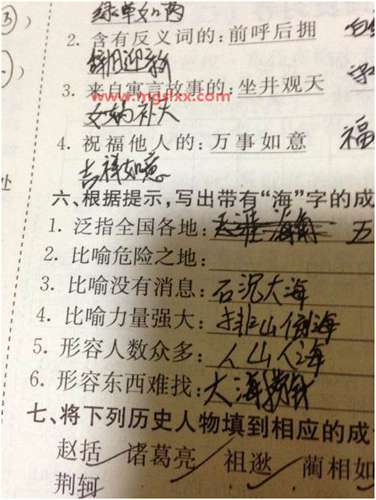 绿草如茵
2. 含有反义词的: 前呼后拥
辞旧迎新
3. 来自寓言故事的: 坐井观天
www.mgflxx.com
女娲补天
4. 祝福他人的: 万事如意 福
吉祥如意
处
六、根据提示,写出带有“海”字的成
1. 泛指全国各地: 天涯海角 五
2. 比喻危险之地:
3. 比喻没有消息: 石沉大海
4. 比喻力量强大: 排山倒海
5. 形容人数众多: 人山人海
6. 形容东西难找: 大海捞针
七、将下列历史人物填到相应的成
赵括 诸葛亮 祖逖 蔺相如
荆轲